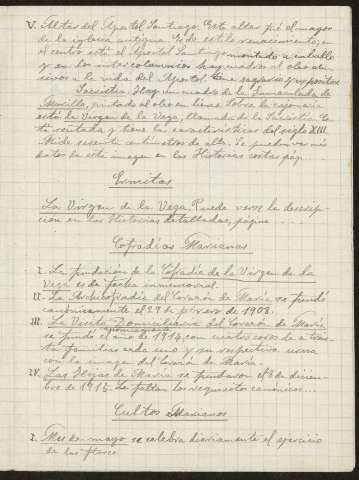 V. Altar del Apostol Santiago. Este altar fué el mayor
de la iglesia antigua. Es de estilo renacimiento; en
el centro está el Apostol Santiago montado a caballo
y en los intercolumnios hay medios al oleo
a la vida del Apostol. Tiene sagrario y expositor
Sacristia. Hay un cuadro de la Inmaculada de
Murillo, pintado al oleo en lienzo. Sobre la cajonería
está la Virgen de la Vega, llamada de la Sacristia. Es
tá sentada y tiene las caracteristicas del siglo XIII.
Mide sesenta centimetros de alta. Se pueden ver más
datos de esta imagen en las Historias cortas pag....
Ermitas
La Virgen de la Vega. Puede verse la descrip-
cion en las Historias detalladas, página ....
Cofradias Marianas
I. La fundacion de la Cofradia de la Virgen de la
Vega es de fecha inmemorial.
II. La Archicofradia del Corazón de Maria se fundó
canónicamente el 27 de febrero de 1908.
III. La Visita Domiciliaria del Corazón de Maria
se fundó el año de 1914, con cuatro coros de a trein-
ta familias cada uno y su respectiva urna
con la imagen del Corazón de Maria.
IV. Las Hijas de Maria se fundaron el 8 de diciem-
bre de 1915. Le faltan los requisitos canónicos...
Cultos Marianos
I. Mes de mayo se celebra diariamente el ejercicio
de las flores